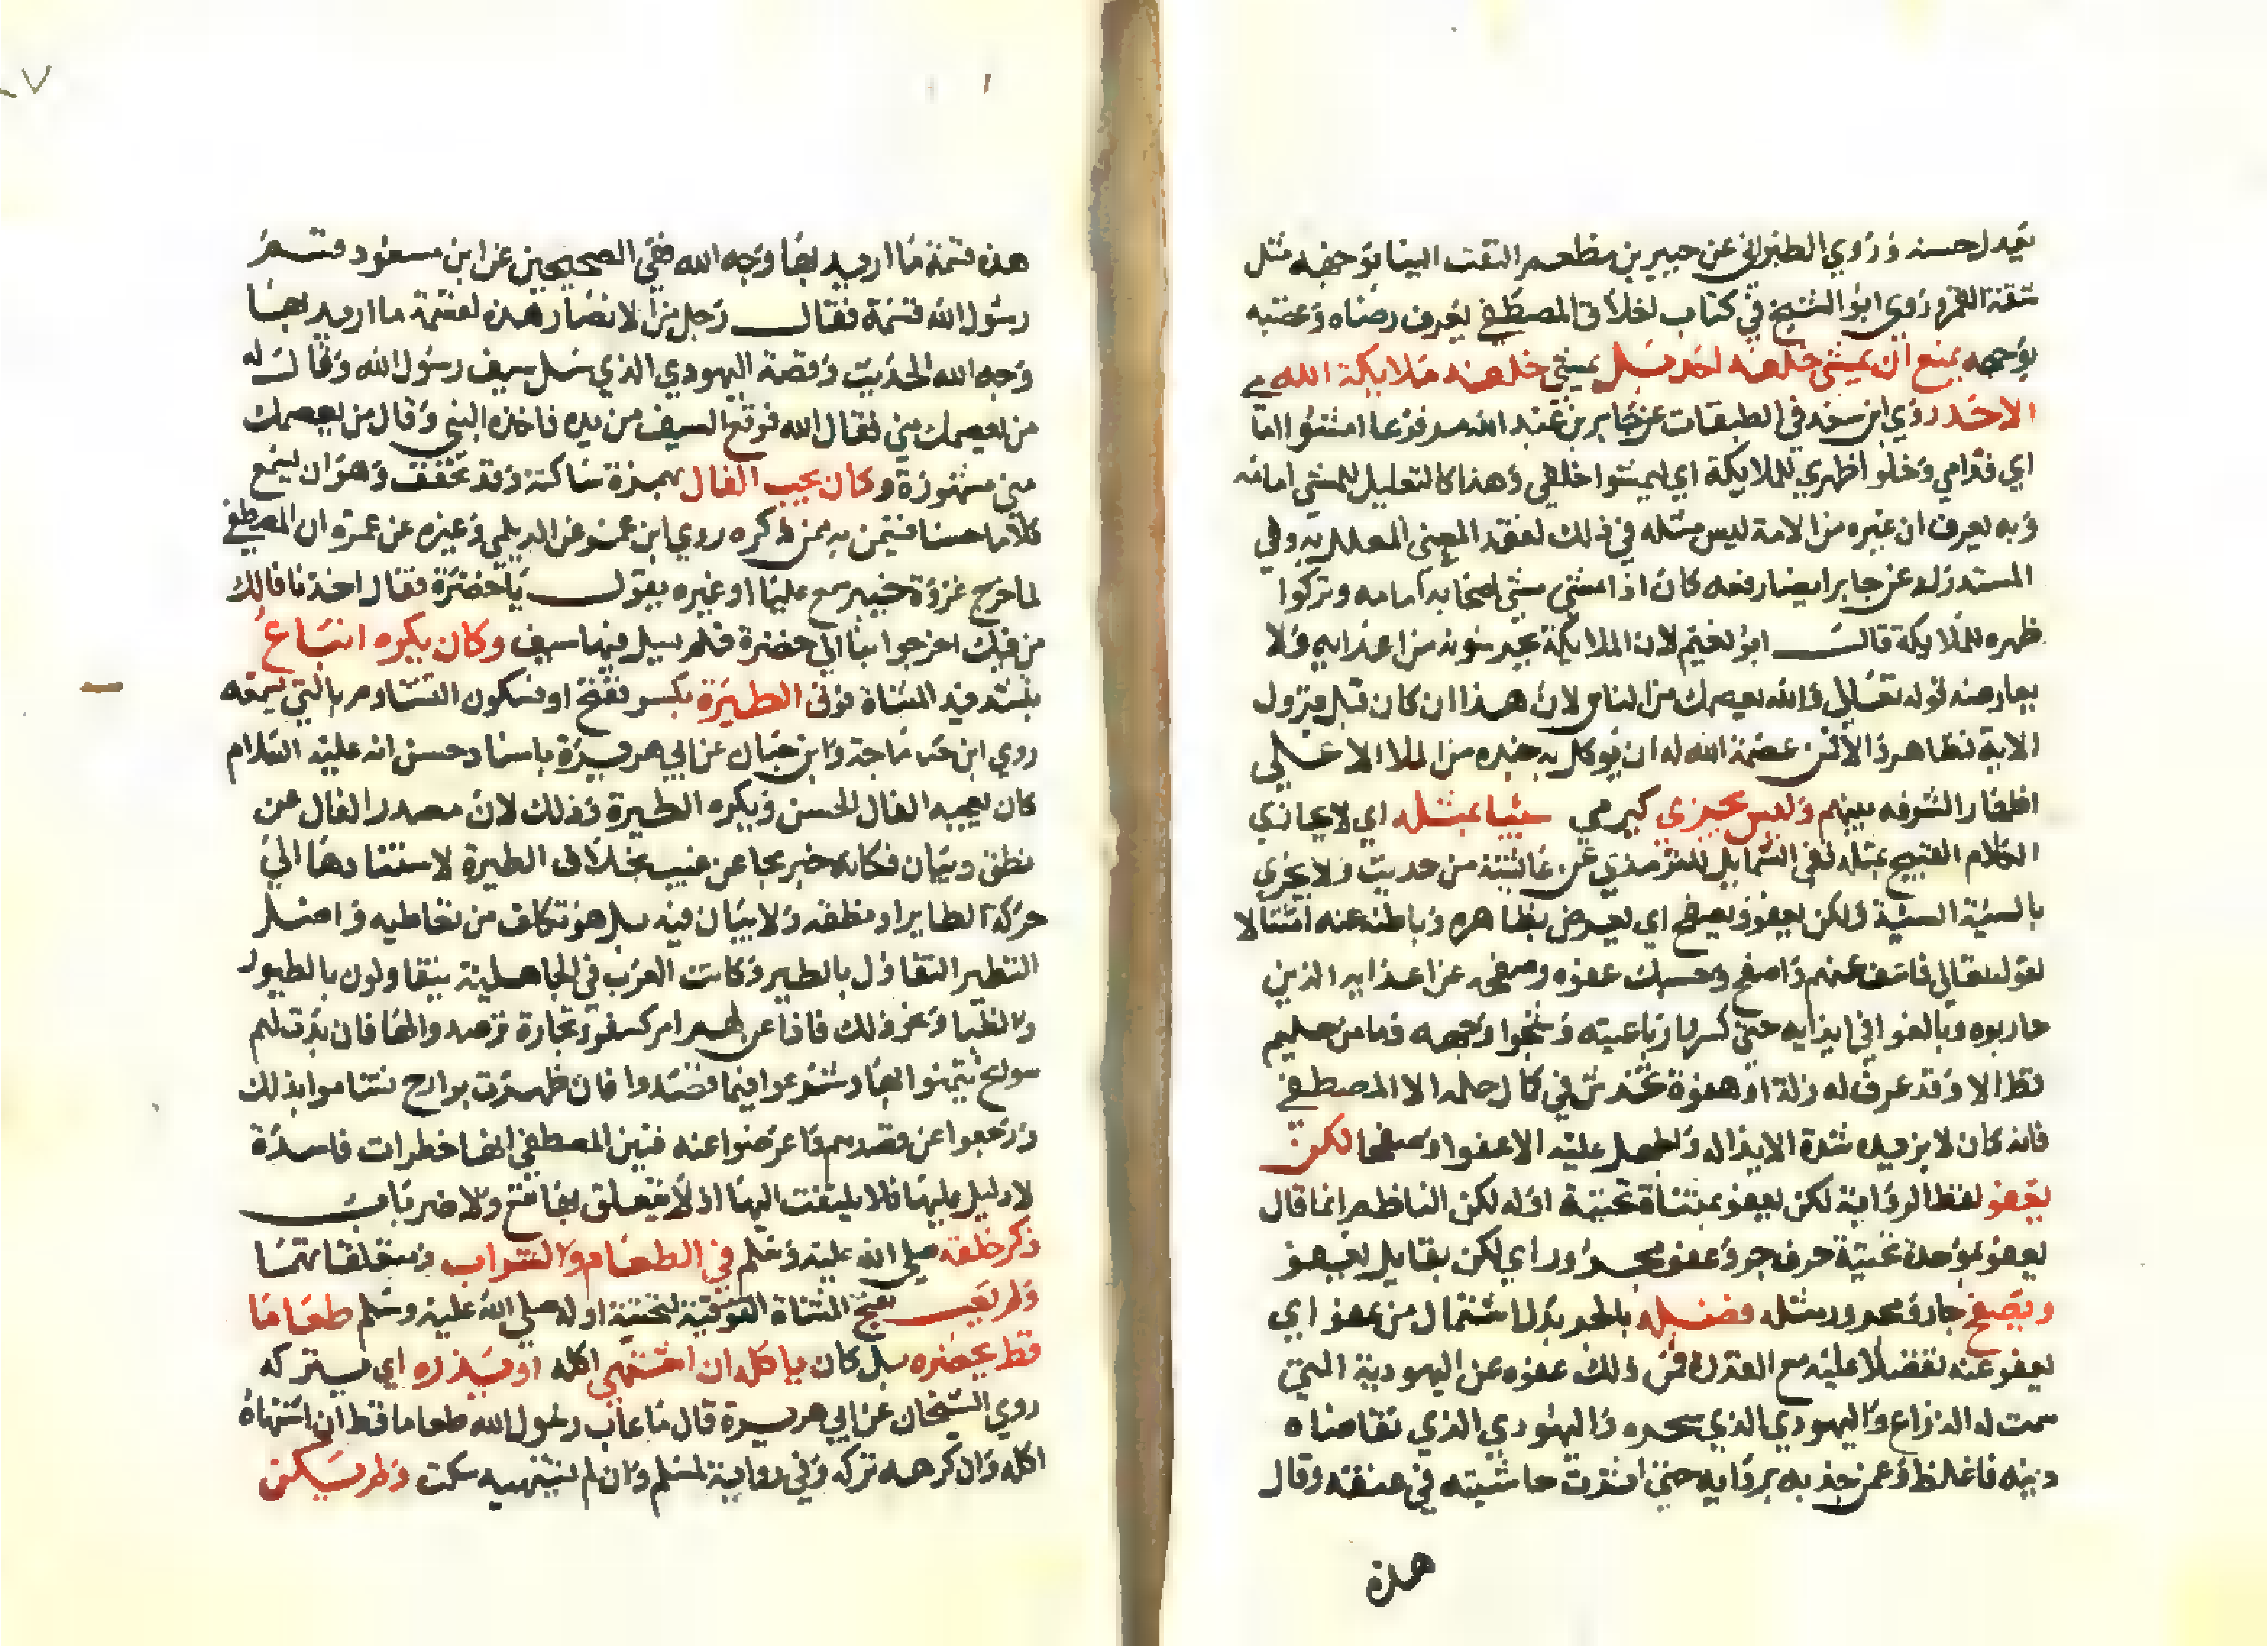 بعيد لحسنه وروي الطبراني عن جبير بن مطعم التفت الينا بوجهه مثل
شقة القمر وروي ابو الشيخ في كتاب اخلاق المصطفي يعرف رضاه وغضبه
بوجهه يمنع ان يمشي خلفه احد بل يمشي خلفه ملايكة الله
الاحد روي ابن سعد في الطبقات عن جابر بن عبد الله مرفوعا امشوا اما
اي قدامي وخلوا ظهري للملايكة اي ليمشوا خلفي وهذا كالتعليل للمشي امامه
وبه يعرف ان غيره من الامة ليس مثله في ذلك لفقد المعني المعلل به وفي
المستدرك عن جابر ايضا رفعه كان اذا مشي مشي اصحابه امامه وتركوا
ظهره للملايكة قال ابو نعيم لان الملايكة يحرسونه من اعدايه ولا
يعارضه قوله تعالي والله يعصمك من الناس لان هذا ان كان قبل نزول
الاية فظاهر والا فمن عصمة الله له ان يوكل به جنده من الملا الاعلي
اظهار الشرفه بينهم وليس يجزي كيرمي سيئا بمثله اي لا يجازي
الكلام القبيح بمثله ففي الشمايل للترمذي عن عائشة من حديث ولا يجزي
بالسيئة السيئة ولكن يعفو ويصفح اي يعرض بظاهره وباطنه عنه امتثالا
لقوله تعالي فاعف عنهم واصفح وحسبك عفوه وصفحه عن اعدايه الذين
حاربوه وبالغوا في ايذايه حتي كسروا رباعيته وشجوا وجهه وما من حليم
قط الا وقد عرف له زلة او هفوة تخدش في كمال حلمه الا المصطفي
فانه كان لا يزيده شدة الايذا له والجهل عليه الا عفوا وصفحا لكن
يعفو لفظ الرواية لكن يعفو بمثناة تحتية اوله لكن الناظم انما قال
بعفو بموحدة تحتية حرف جر وعفو مجرور اي لكن يقابل بعفو
وبصفح جار ومجرور مثله فضله بالجر بدل اشتمال من عفو اي
يعفو عنه تفضلا عليه مع القدرة فمن ذلك عفوه عن اليهودية التي
سمت له الذراع واليهودي الذي سحره واليهودي الذي تقاضاه
دينه فاغلظ وعمن جذبه بردايه حتي اثرت حاشيته في عنقه وقال
هذه
هذه قسمة ما اريد بها وجه الله ففي الصحيحين عن ابن مسعود قسم
رسول الله قسمة فقال رجل من الانصار هذه لقسمة ما اريد بها
وجه الله الحديث وقصة اليهودي الذي سل سيف رسول الله وقال له
من يعصمك مني فقال الله فوقع السيف من يده فاخذه النبي وقال من يعصمك
مني مشهورة وكان يحب الفال بهمزة ساكنة وقد تخفف وهو ان يسمع
كلاما حسنا فيتيمن به ممن ذكره روي ابن عمر عن الديلمي وغيره عن عمرة ان المصطفي
لما خرج غزوة خيبر سمع عليا او غيره يقول يا خضرة فقال اخذنا فالك
من فيك اخرجوا بنا الي خضرة فلم يسل فيها سيف وكان يكره اتباع
بتشديد المثناة فوق الطيرة بكسر ففتح او بسكون التشاوم بالشي يسمعه
روي ابن ماجة وابن حبان عن ابي هريرة باسناد حسن انه عليه السلام
كان يعجبه الفال الحسن ويكره الطيرة وذلك لان مصدر الفال عن
نطق وبيان فكانه خبر جا عن غيب بخلاف الطيرة لاستنادها الي
حركة الطاير او نطقه ولا بيان فيه بل هو تكلف من تعاطيه واصل
التطير التفاول بالطير وكانت العرب في الجاهلية يتفاولون بالطيور
والظبا ونحو ذلك فاذا عن لهم امر كسفر وتجارة ترصدوا لها فان بدت لهم
سوانح تيمنوا بها وشرعوا فيما قصدوا فان ظهرت بوارح تشاموا بذلك
ورجعوا عن قصدهم واعرضوا عنه فبين المصطفي انها خطرات فاسدة
لا دليل عليها فلا يلتفت اليها اذ لا يتعلق بها نفع ولا ضر باب
ذكر خلقه صلي الله عليه وسلم في الطعام والشراب ومتعلقاتهما
ولم يعب بفتح المثناة الفوقية لتحتية اوله صلي الله عليه وسلم طعاما
قط يحضره بل كان ياكله ان اشتهي اكله او يذره اي يتركه
روي الشيخان عن ابي هريرة قال ما عاب رسول الله طعاما قط ان اشتهاه
اكله وان كرهه تركه وفي رواية لمسلم وان لم يشتهيه سكت ولم يكن